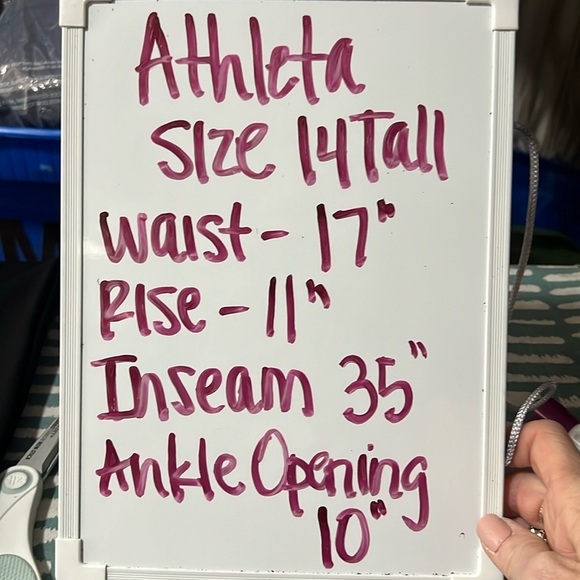 Athleta
Size 14 Tall
Waist - 17"
Rise - 11"
Inseam 35"
Ankle Opening
10"